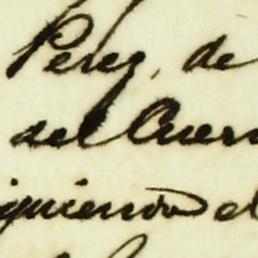 Perez, de
del Cuer
iguiendo el